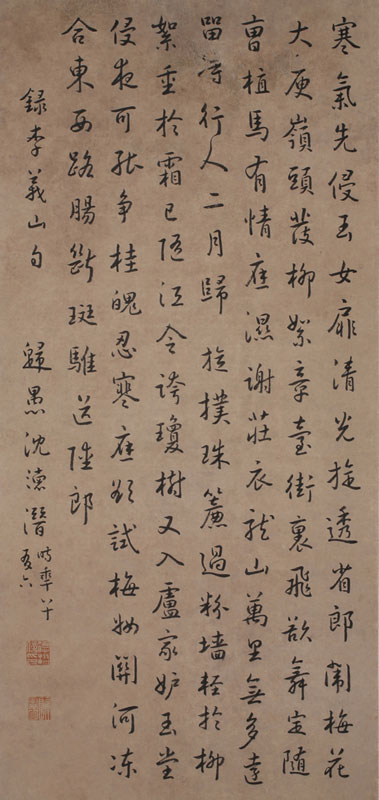 寒氣先侵玉女扉清光旋透省郎闈梅花
大庾嶺頭發柳絮章臺街裏飛欲舞定隨
曹植馬有情應濕謝莊衣龍山萬里無多遠
留待行人二月歸 旋撲珠簾過粉墻輕於柳
絮重於霜已隨江令誇瓊樹又入盧家妒玉堂
侵夜可能爭桂魄忍寒應欲試梅妝關河凍
合東西路腸斷斑騅送陸郎
錄李義山句 歸愚沈德潛
時年八十
有六